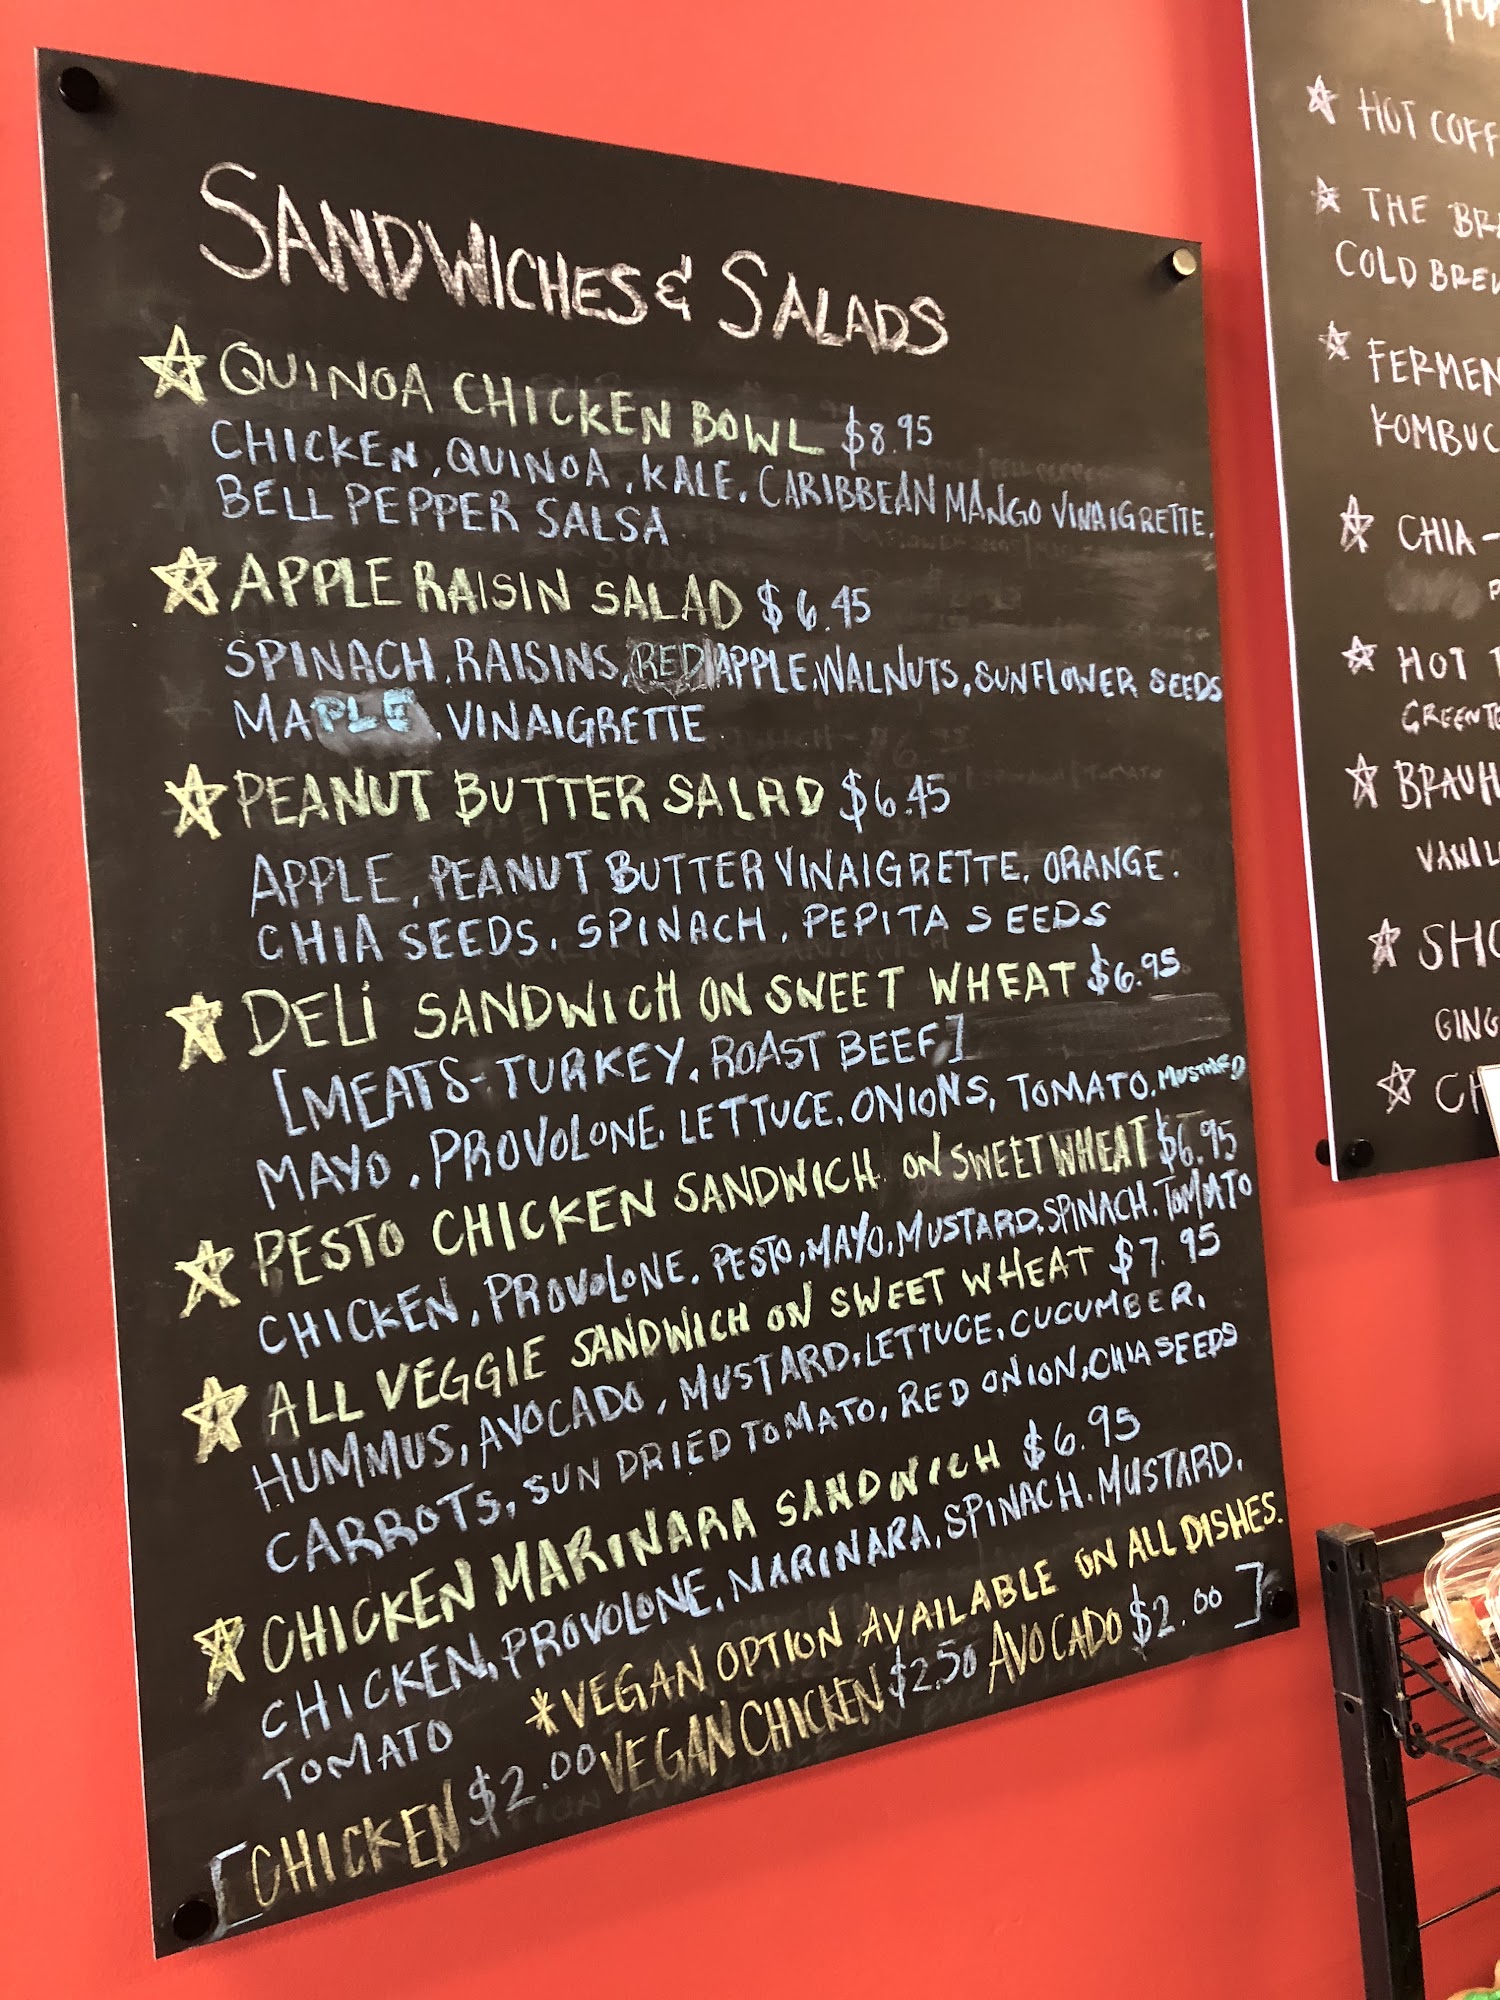 SANDWICHES & SALADS
QUINOA CHICKEN BOWL $8.95
CHICKEN, QUINOA, KALE, CARIBBEAN MANGO VINAIGRETTE,
BELL PEPPER SALSA
APPLE RAISIN SALAD $6.45
SPINACH, RAISINS, RED APPLE, WALNUTS, SUNFLOWER SEEDS
MAPLE, VINAIGRETTE
PEANUT BUTTER SALAD $6.45
APPLE, PEANUT BUTTER VINAIGRETTE, ORANGE,
CHIA SEEDS, SPINACH, PEPITA SEEDS
DELI SANDWICH ON SWEET WHEAT $6.95
[MEATS-TURKEY, ROAST BEEF]
MAYO, PROVOLONE, LETTUCE, ONIONS, TOMATO, MUSTARD
PESTO CHICKEN SANDWICH ON SWEET WHEAT $6.95
CHICKEN, PROVOLONE, PESTO, MAYO, MUSTARD, SPINACH, TOMATO
ALL VEGGIE SANDWICH ON SWEET WHEAT $7.95
HUMMUS, AVOCADO, MUSTARD, LETTUCE, CUCUMBER,
CARROTS, SUN DRIED TOMATO, RED ONION, CHIA SEEDS
CHICKEN MARINARA SANDWICH $6.95
CHICKEN, PROVOLONE, MARINARA, SPINACH, MUSTARD,
TOMATO *VEGAN OPTION AVAILABLE ON ALL DISHES.
[CHICKEN $2.00 VEGAN CHICKEN $2.50 AVOCADO $2.00]
HOT COFF
THE BR
COLD BREW
FERMEN
KOMBUC
CHIA -
HOT T
GREEN TE
BRAUH
VANIL
SHO
GING
CH